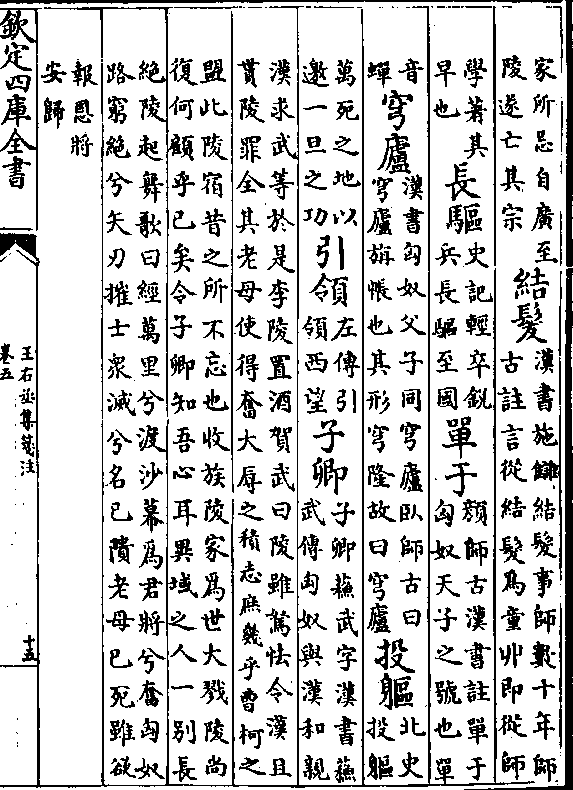 家所忌自廣至
陵遂亡其宗
結髮
漢書施讎結髮事師數十年師
古註言從結髮爲童丱即從師
學著其
早也
長驅
史記輕卒銳
兵長驅至國
單于
顏師古漢書註單于
匈奴天子之號也單
音
蟬
穹廬
漢書匈奴父子同穹廬臥師古曰
穹廬旃帳也其形穹隆故曰穹廬
投軀
北史
投軀
萬死之地以
邀一旦之功
引領
左傳引
領西望
子卿
子卿蘇武字漢書蘇
武傳匈奴與漢和親
漢求武等於是李陵置酒賀武曰陵雖駑怯令漢且
貰陵罪全其老母使得奮大辱之積志庶幾乎曹柯之
盟此陵宿昔之所不忘也收族陵家爲世大戮陵尚
復何顧乎已矣令子卿知吾心耳異域之人一別長
絶陵起舞歌曰經萬里兮渡沙幕爲君將兮奮匈奴
路窮絶兮矢刃摧士衆滅兮名已隤老母已死雖欲
報恩將
安歸
欽定四庫全書
王右丞集箋注
卷五
十五